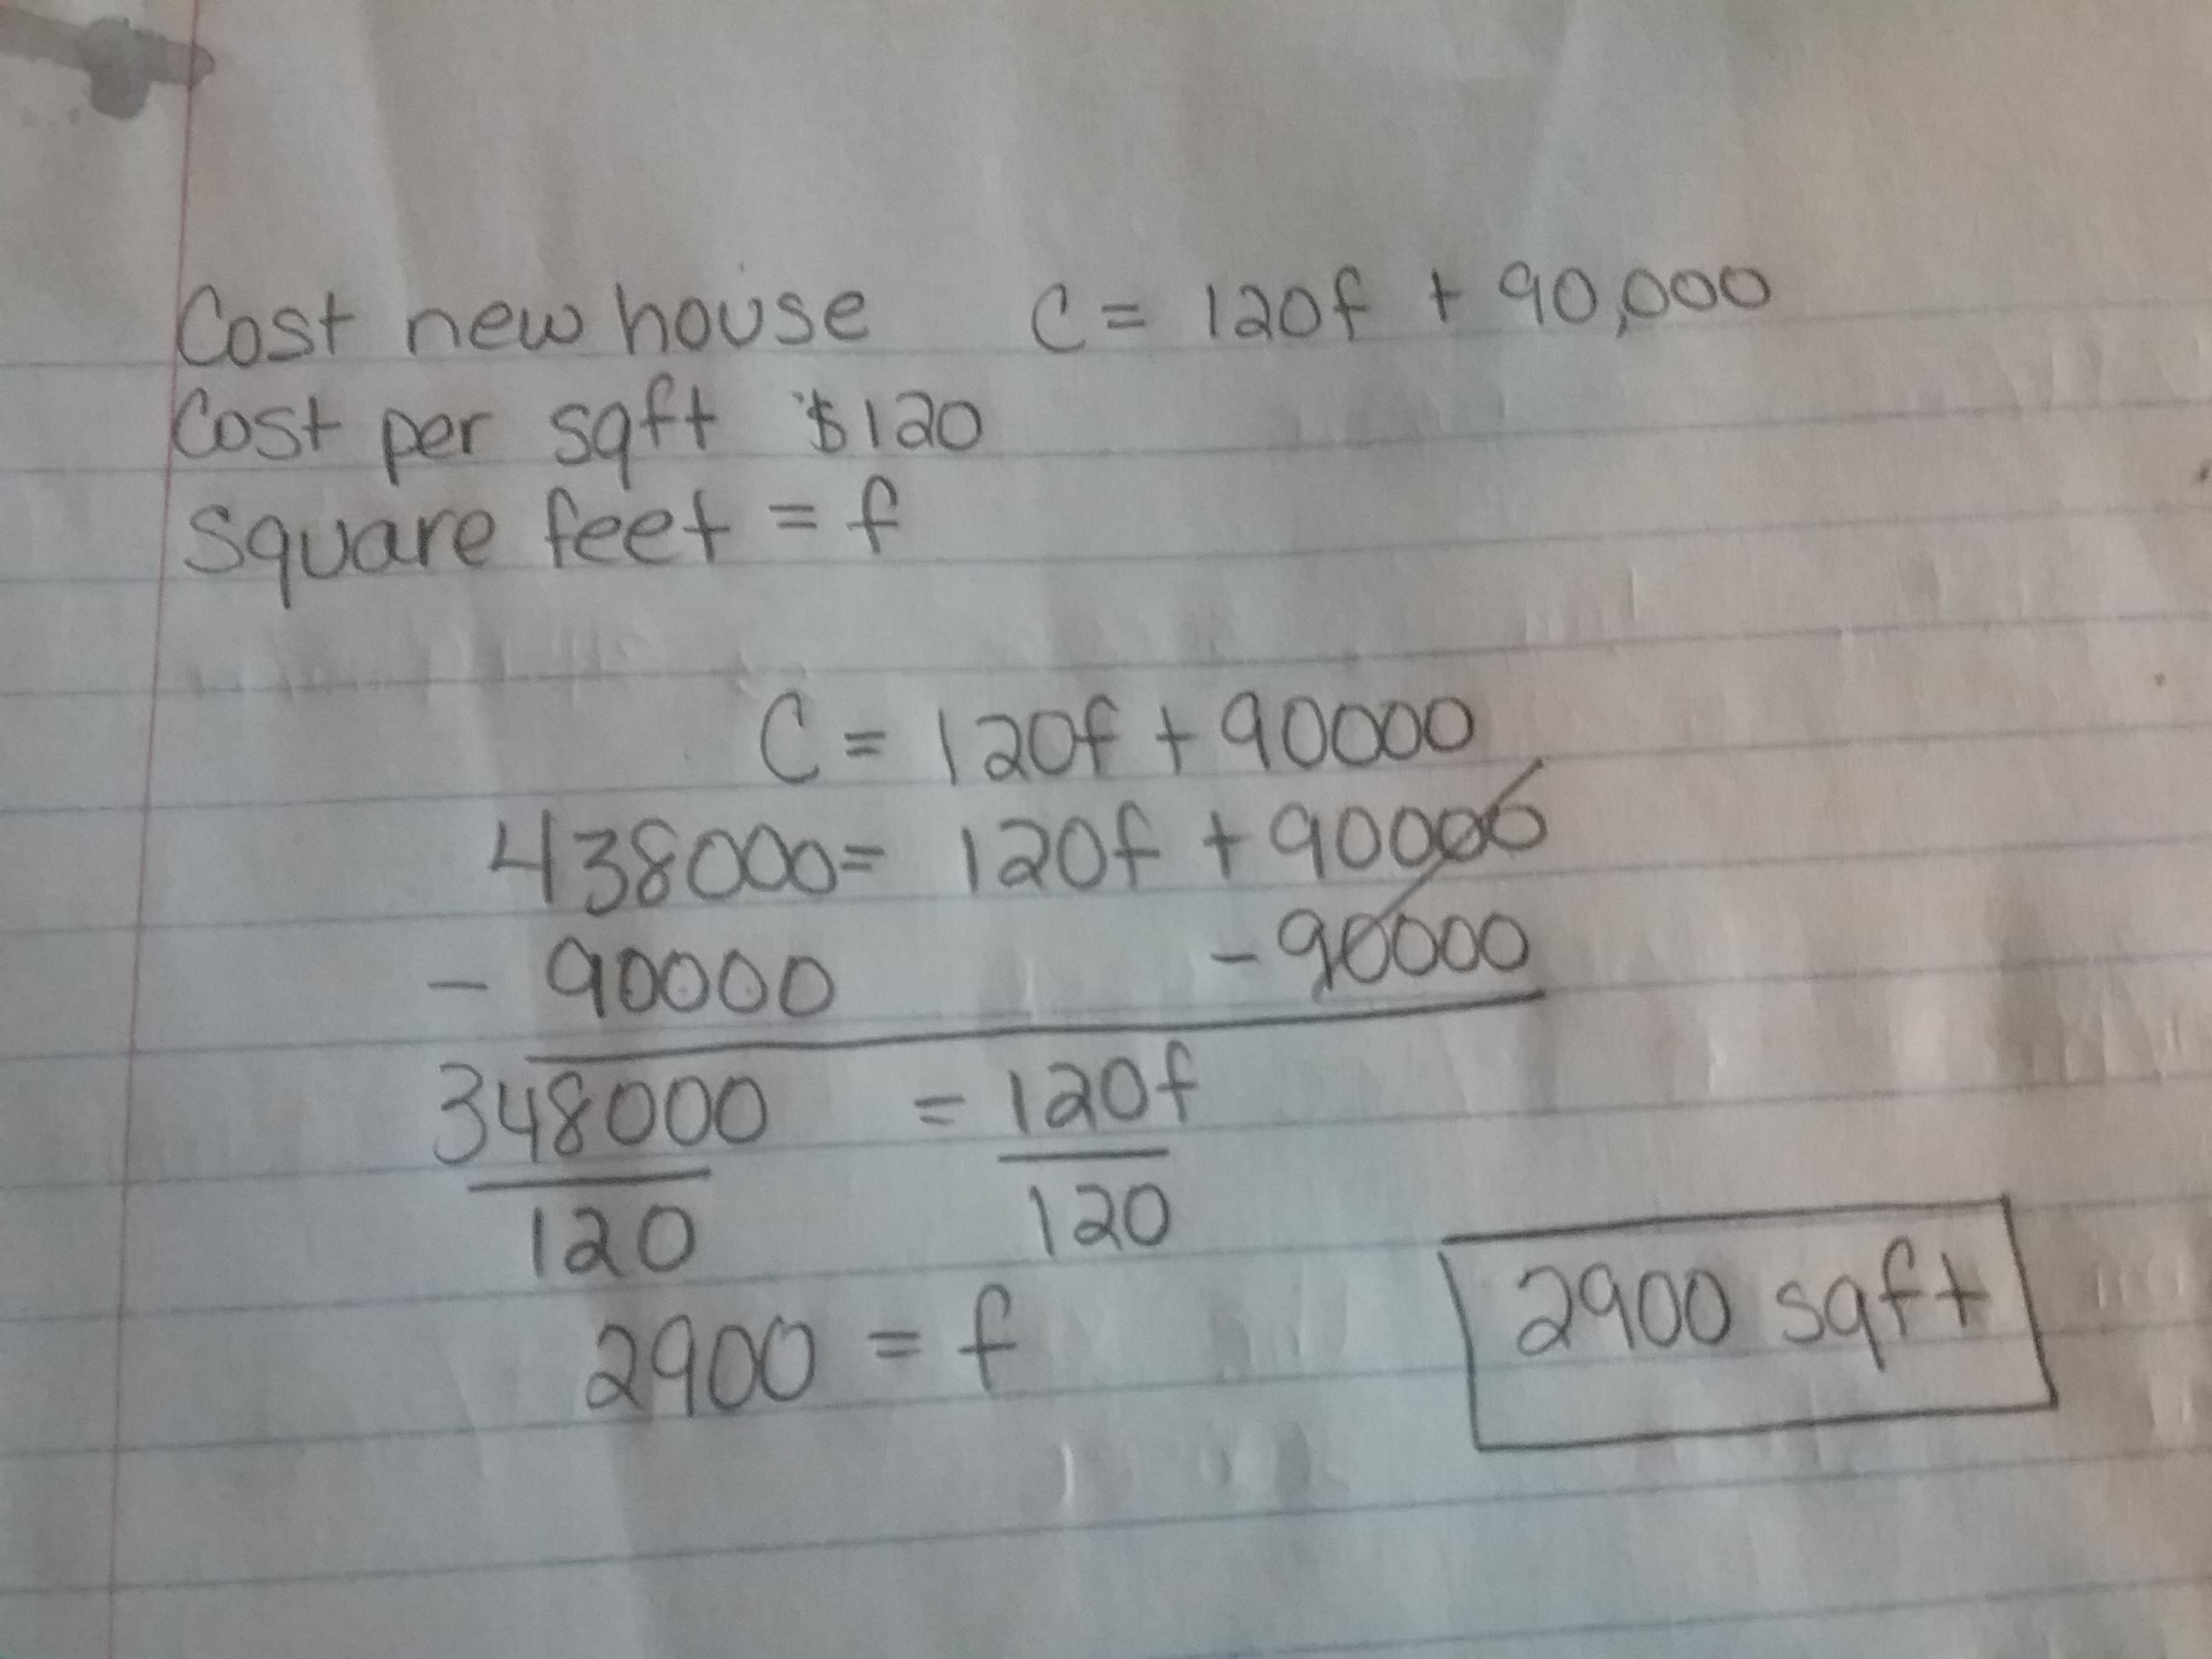 Cost new house C = 120f + 90,000
Cost per sqft $120
Square feet = f
C = 120f + 90000
438000 = 120f + 90000
- 90000 - 90000
348000 = 120f
120 120
2900 = f
2900 sqft